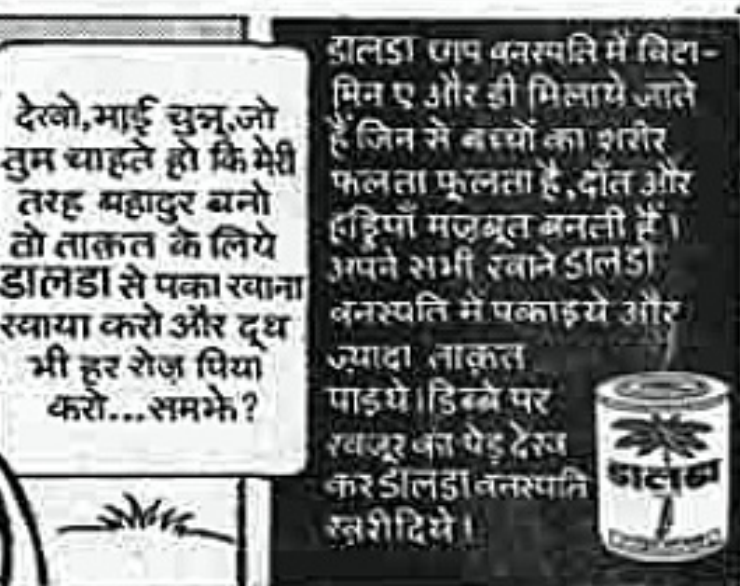 देखो,भाई चुन्नू,जो
तुम चाहते हो कि मेरी
तरह बहादुर बनो
तो ताक़त के लिये
डालडा से पका खाना
खाया करो और दूध
भी हर रोज़ पिया
करो...समझे?
डालडा छाप वनस्पति में विटा-
मिन ए और डी मिलाये जाते
हैं जिन से बच्चों का शरीर
फलता फूलता है,दाँत और
हड्डियाँ मज़बूत बनती हैं।
अपने सभी खाने डालडा
वनस्पति में पकाइये और
ज़्यादा ताक़त
पाइये।डिब्बे पर
खजूर का पेड़ देख
कर डालडा वनस्पति
ख़रीदिये।
डालडा